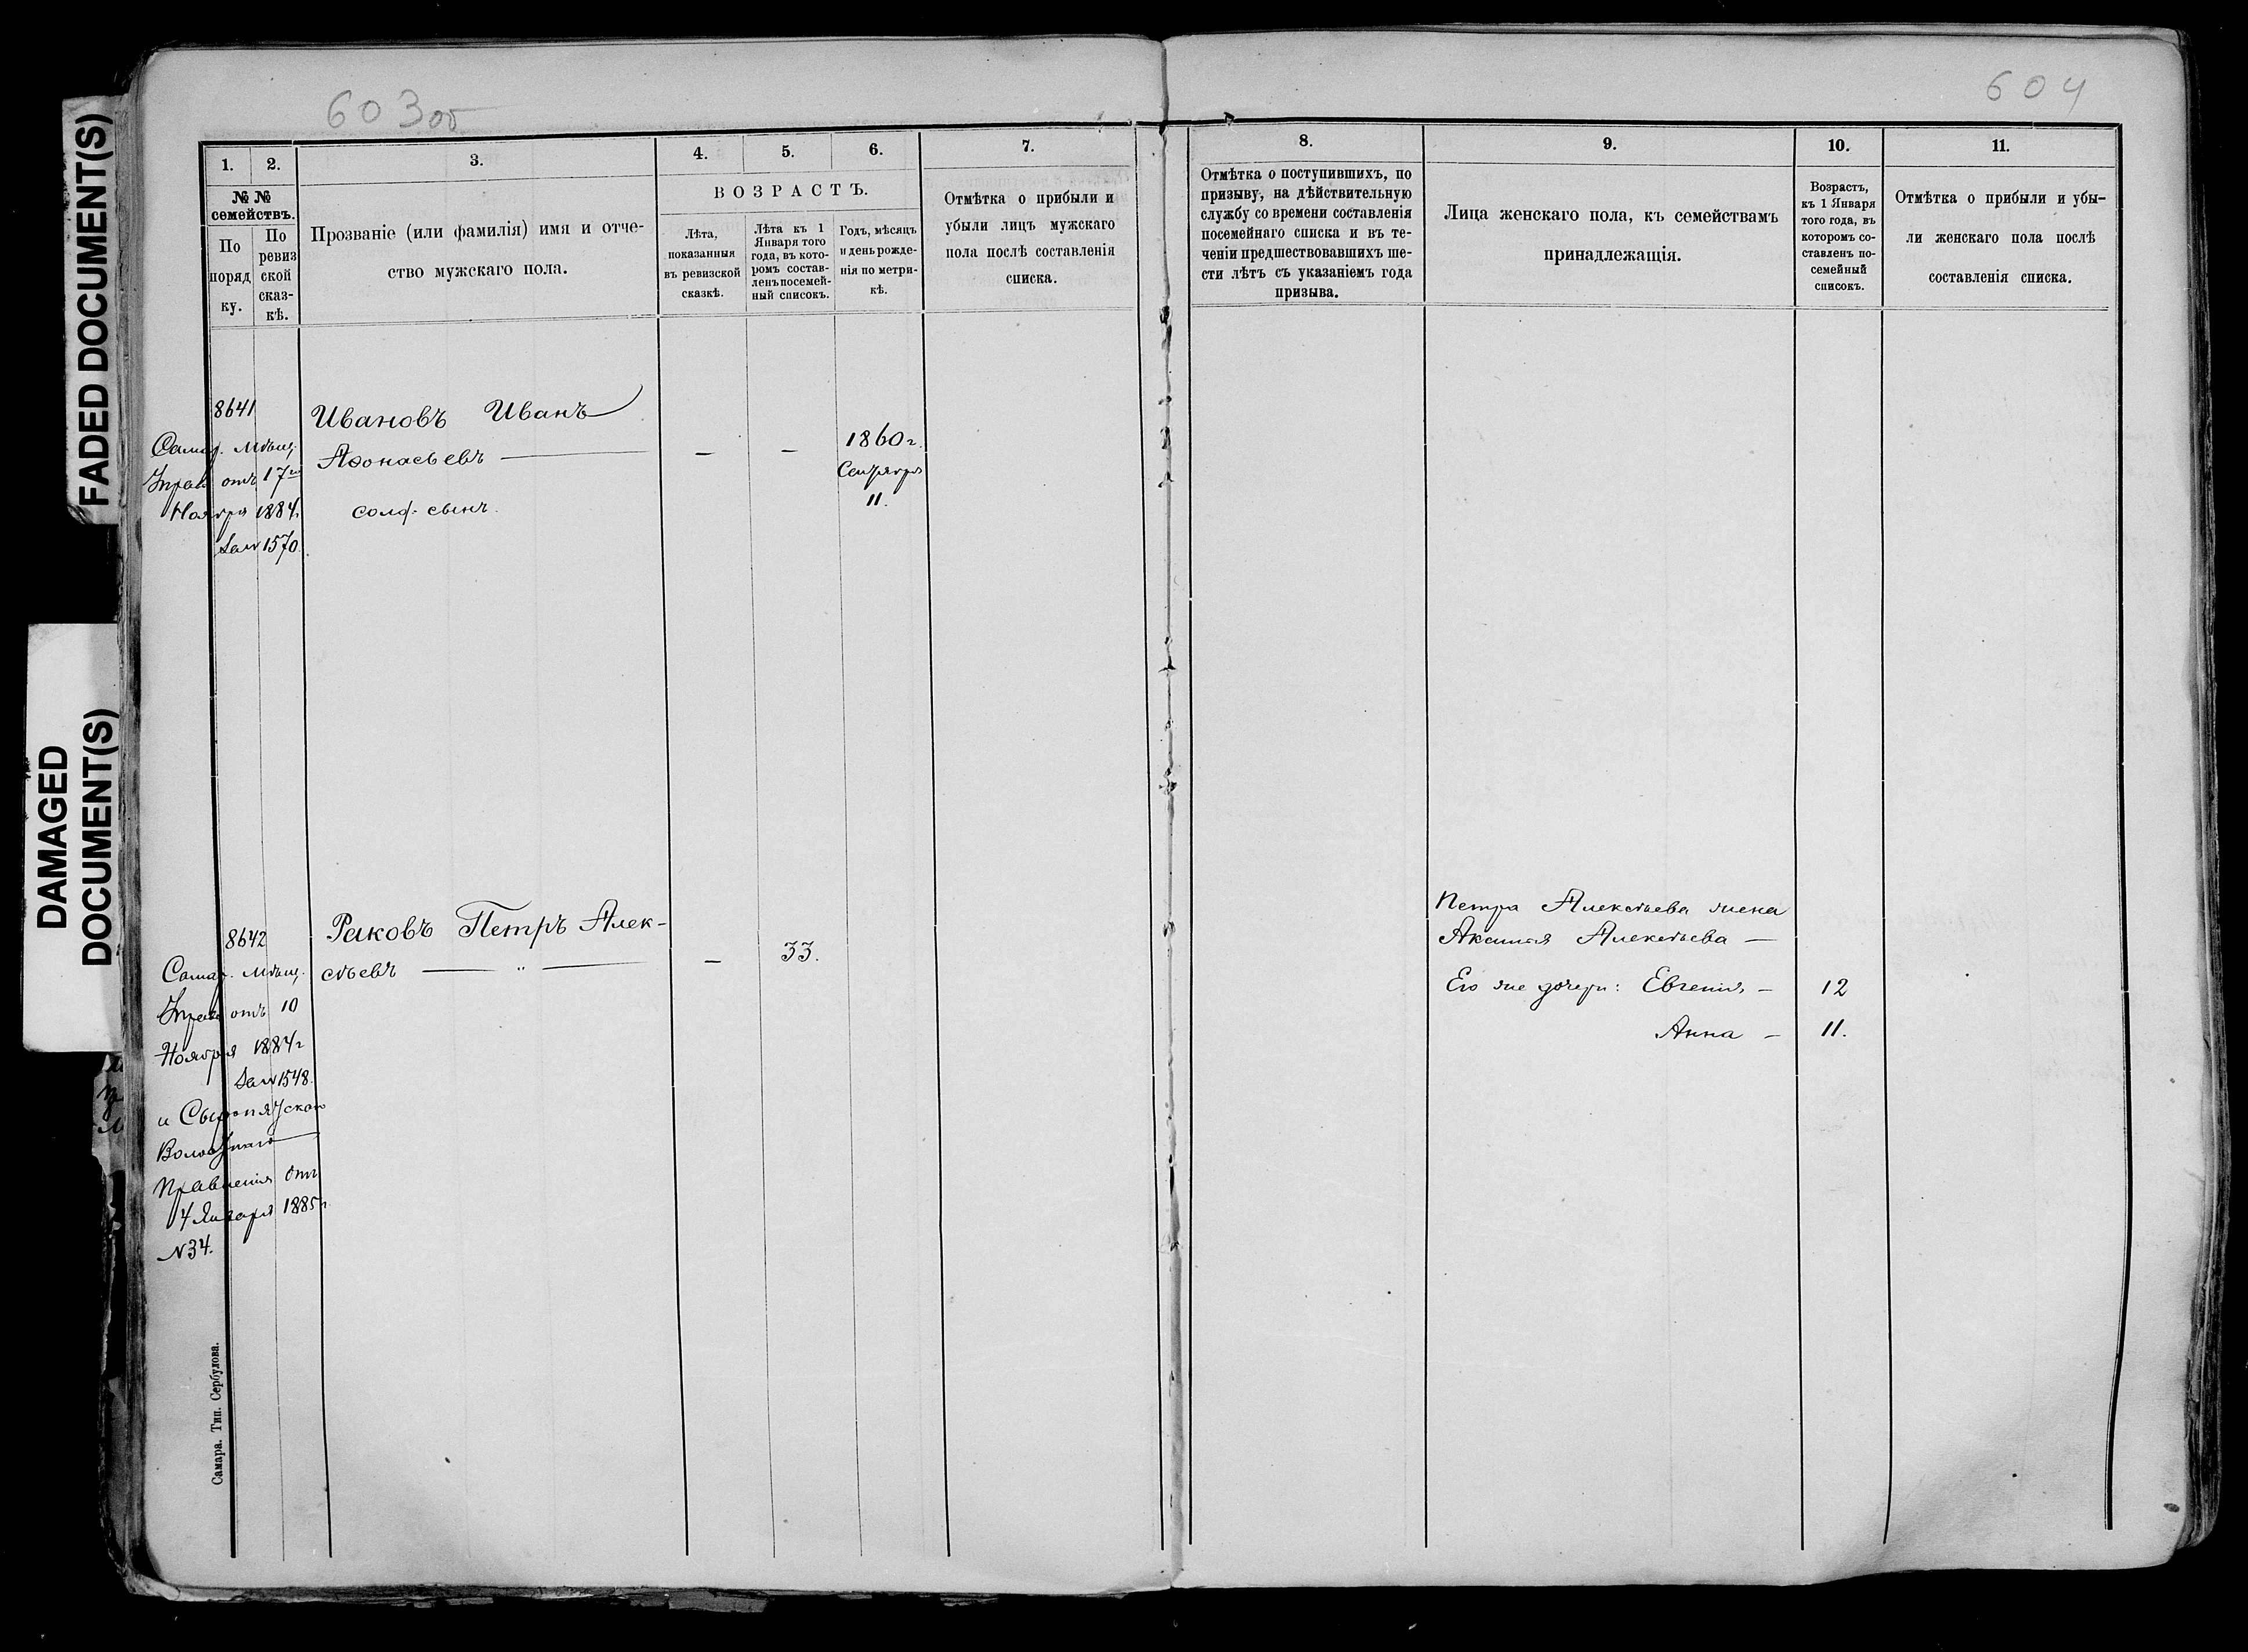 FADED DOCUMENT(S)
DAMAGED
DOCUMENT(S)
603об
604
1.
2.
3.
4.
5.
6.
7.
№ №
семействъ.
По
поряд
ку.
По
ревиз
ской
сказ-
кѣ.
Прозваніе (или фамилія) имя и отче-
ство мужскаго пола.
ВОЗРАСТЪ.
Лѣта,
показанныя
въ ревизской
сказкѣ.
Лѣта къ 1
Января того
года, въ кото-
ромъ состав-
ленъ посемей-
ный списокъ.
Годъ, мѣсяцъ
и день рожде-
нія по метри-
кѣ.
Отмѣтка о прибыли и
убыли лицъ мужскаго
пола послѣ составленія
списка.
8.
9.
10.
11.
Отмѣтка о поступившихъ, по
призыву, на дѣйствительную
службу со времени составленія
посемейнаго списка и въ те-
ченіи предшествовавшихъ ше-
сти лѣтъ съ указаніемъ года
призыва.
Лица женскаго пола, къ семействамъ
принадлежащія.
Возрастъ,
къ 1 Января
того года, въ
которомъ со-
ставленъ по-
семейный
списокъ.
Отмѣтка о прибыли и убы-
ли женскаго пола послѣ
составленія списка.
8641
Самар. Мѣщ.
Управ отъ 17го
Ноября 1884г
за № 1570.
Ивановъ Иванъ
Афонасьевъ —
солд. сынъ.
—
—
1860 г.
Сентября
11.
8642
Самар. Мѣщ.
Управ отъ 10
Ноября 1884г
за № 1548.
и Сыропятскаго
Волостнаго
Правленія отъ
4 Января 1885г.
№ 34.
Раковъ Петръ Алек-
сѣевъ — " —
—
33.
Петра Алексѣева жена
Аксинья Алексѣева —
Его же дочери: Евгенія —
12
Анна —
11.
Самара. Тип. Сербулова.